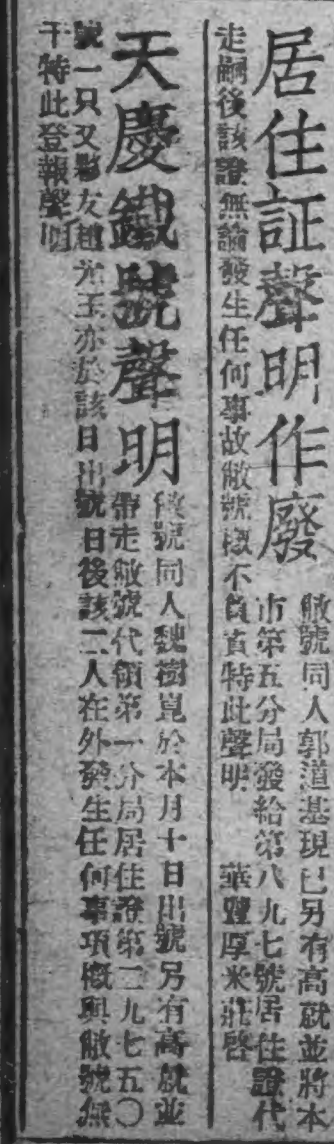 居住証聲明作廢
敝號同人郭道基現已另有高就並將本
市第五分局發給第八九七號居住證代
走嗣後該證無論發生任何事故敝號概不負責特此聲明 華豐厚米莊啓
天慶鐵號聲明
敝號同人魏樹崑於本月十日出號另有高就並
帶走敝號代領第一分局居住證第二九七五〇
號一只又夥友趙光玉亦於該日出號日後該二人在外發生任何事項概與敝號無
干特此登報聲明